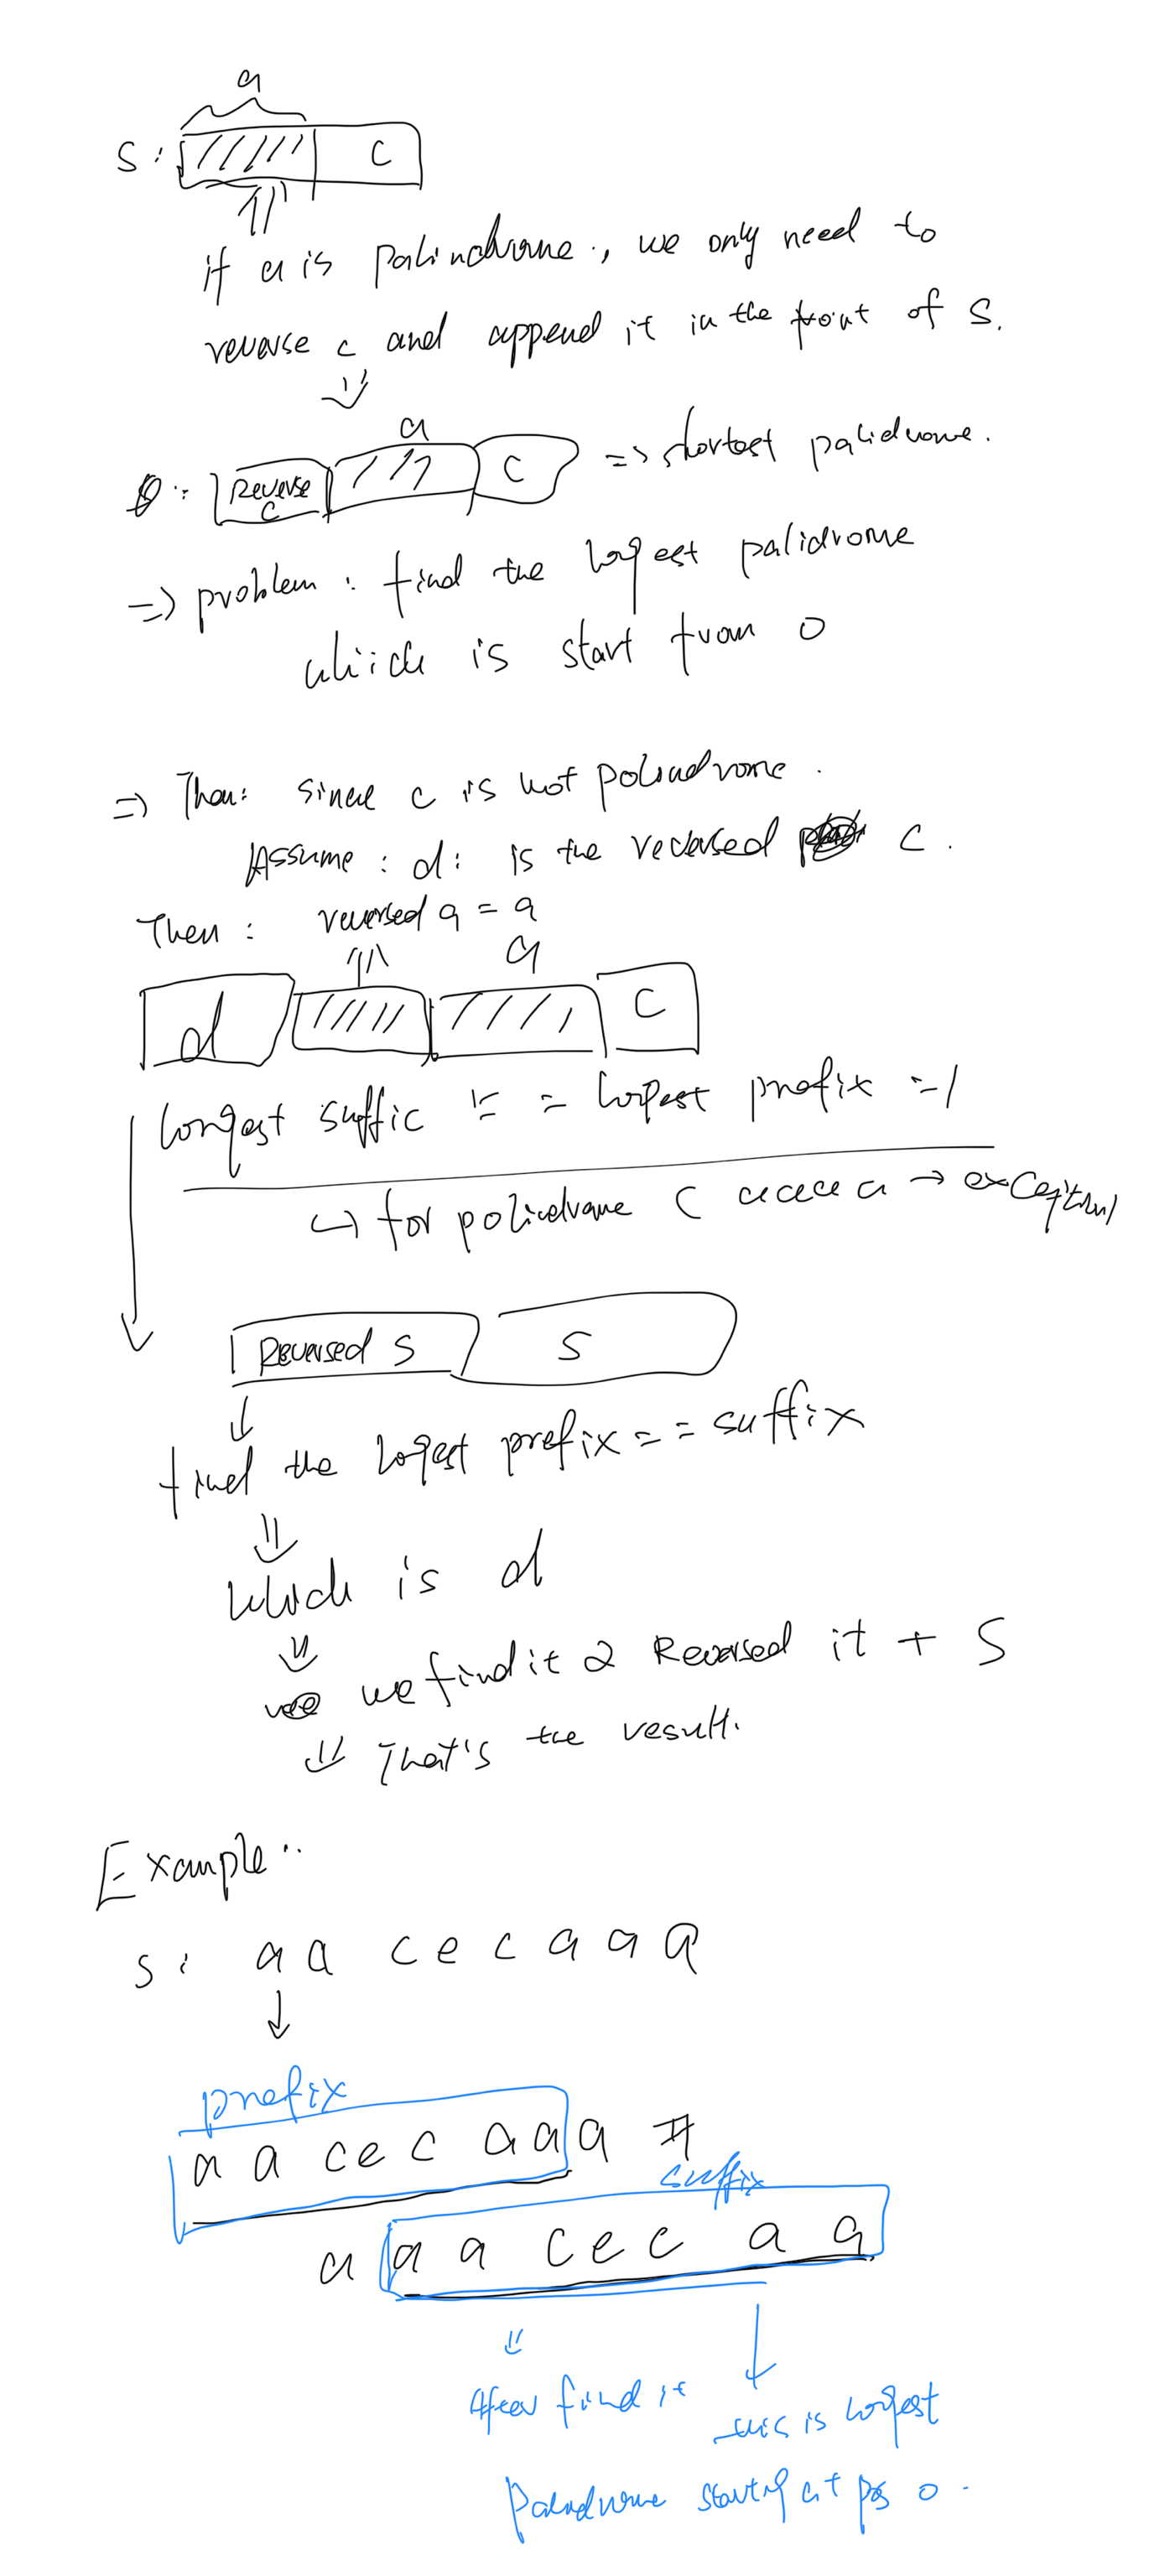 a
S: C
if a is palindrome, we only need to
reverse c and append it in the front of S.
a
Reverse C C => shortest palidrome.
=> problem: find the longest palidrome
which is start from 0
=> Then: since c is not palindrome.
Assume: d: is the reversed c.
Then: reversed a = a
a
d C
longest suffic != = longest prefix
↳ for palindrome ( aaaa a →
Reversed S S
find the longest prefix == suffix
which is d
we find it & Reversed it + S
That's the result.
Example:
S: a a c e c a a a
prefix
a a c e c a a a #
suffix
a a a c e c a a
After find it
this is longest
Palindrome starting at pos 0.